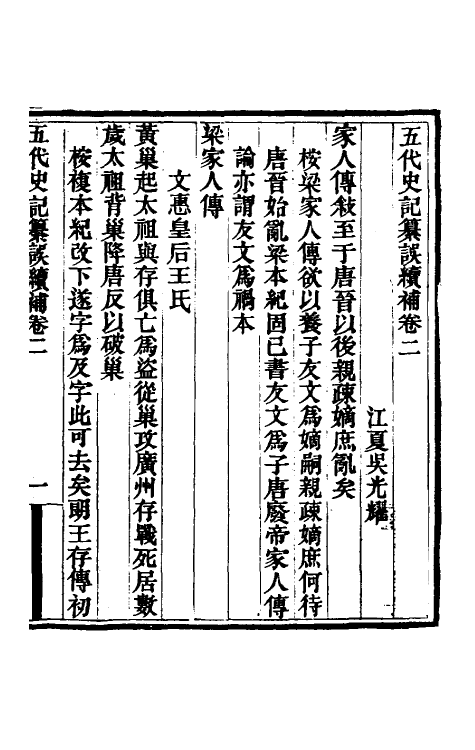 五代史記纂誤續補卷二
江夏吳光耀
家人傳敍至于唐晉以後親疎嫡庶亂矣
桉梁家人傳欲以養子友文爲嫡嗣親疎嫡庶何待
唐晉始亂梁本紀固已書友文爲子唐廢帝家人傳
論亦謂友文爲禍本
梁家人傳
文惠皇后王氏
黃巢起太祖與存俱亡爲盜從巢攻廣州存戰死居數
歲太祖背巢降唐反以破巢
桉複本紀改下遂字爲及字此可去矣朙王存傳初
五代史記纂誤續補卷二
一